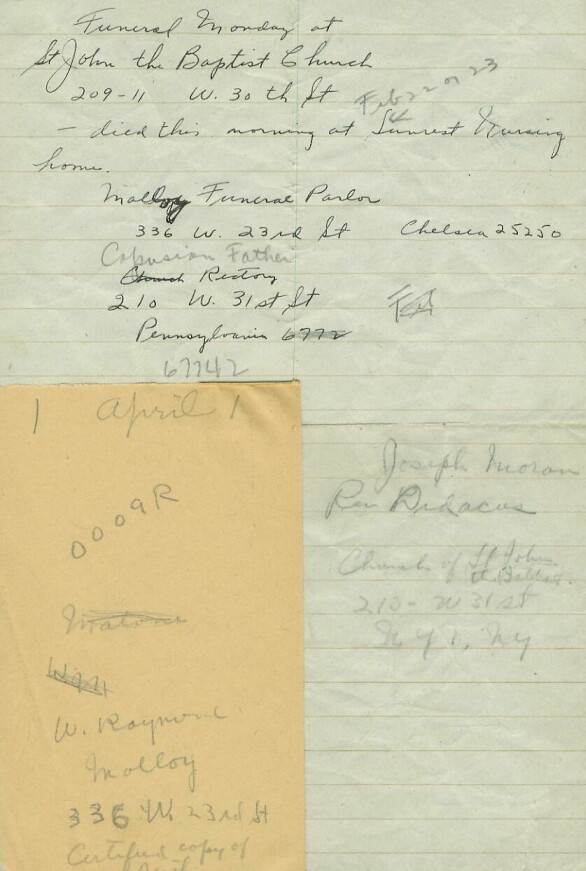 Funeral Monday at
St John the Baptist Church
209-11 W. 30th St
Feb 22 or 23
4
- died this morning at Sunrest Nursing
home.
Malloy Funeral Parlor
336 W. 23rd St Chelsea 25250
Capusian Father
Church Rectory
210 W. 31st St
Pennsylvania 6772
67742
1 April 1
0009R
W. Raymond
Malloy
336 W 23rd St
Certified copy of
April
Joseph Moran
Rev Didacus
Church of St John
210 - W 31 st
N Y 1, Ny